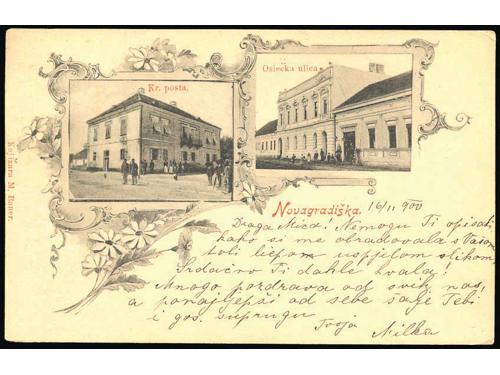 Kr. pošta.
Osiečka ulica
Knjižara M. Bauer.
Novagradiška.
16/11 900
Draga Mica! Nemogu Ti opisati
kako si me obradovala s Vašom
toli liepom uspjelom slikom
Srdačno Ti dakle hvala!
Mnogo pozdrava od svih nas,
a ponajljepši od sebe šalje Tebi
i gos. suprugu
Tvoja
Milka